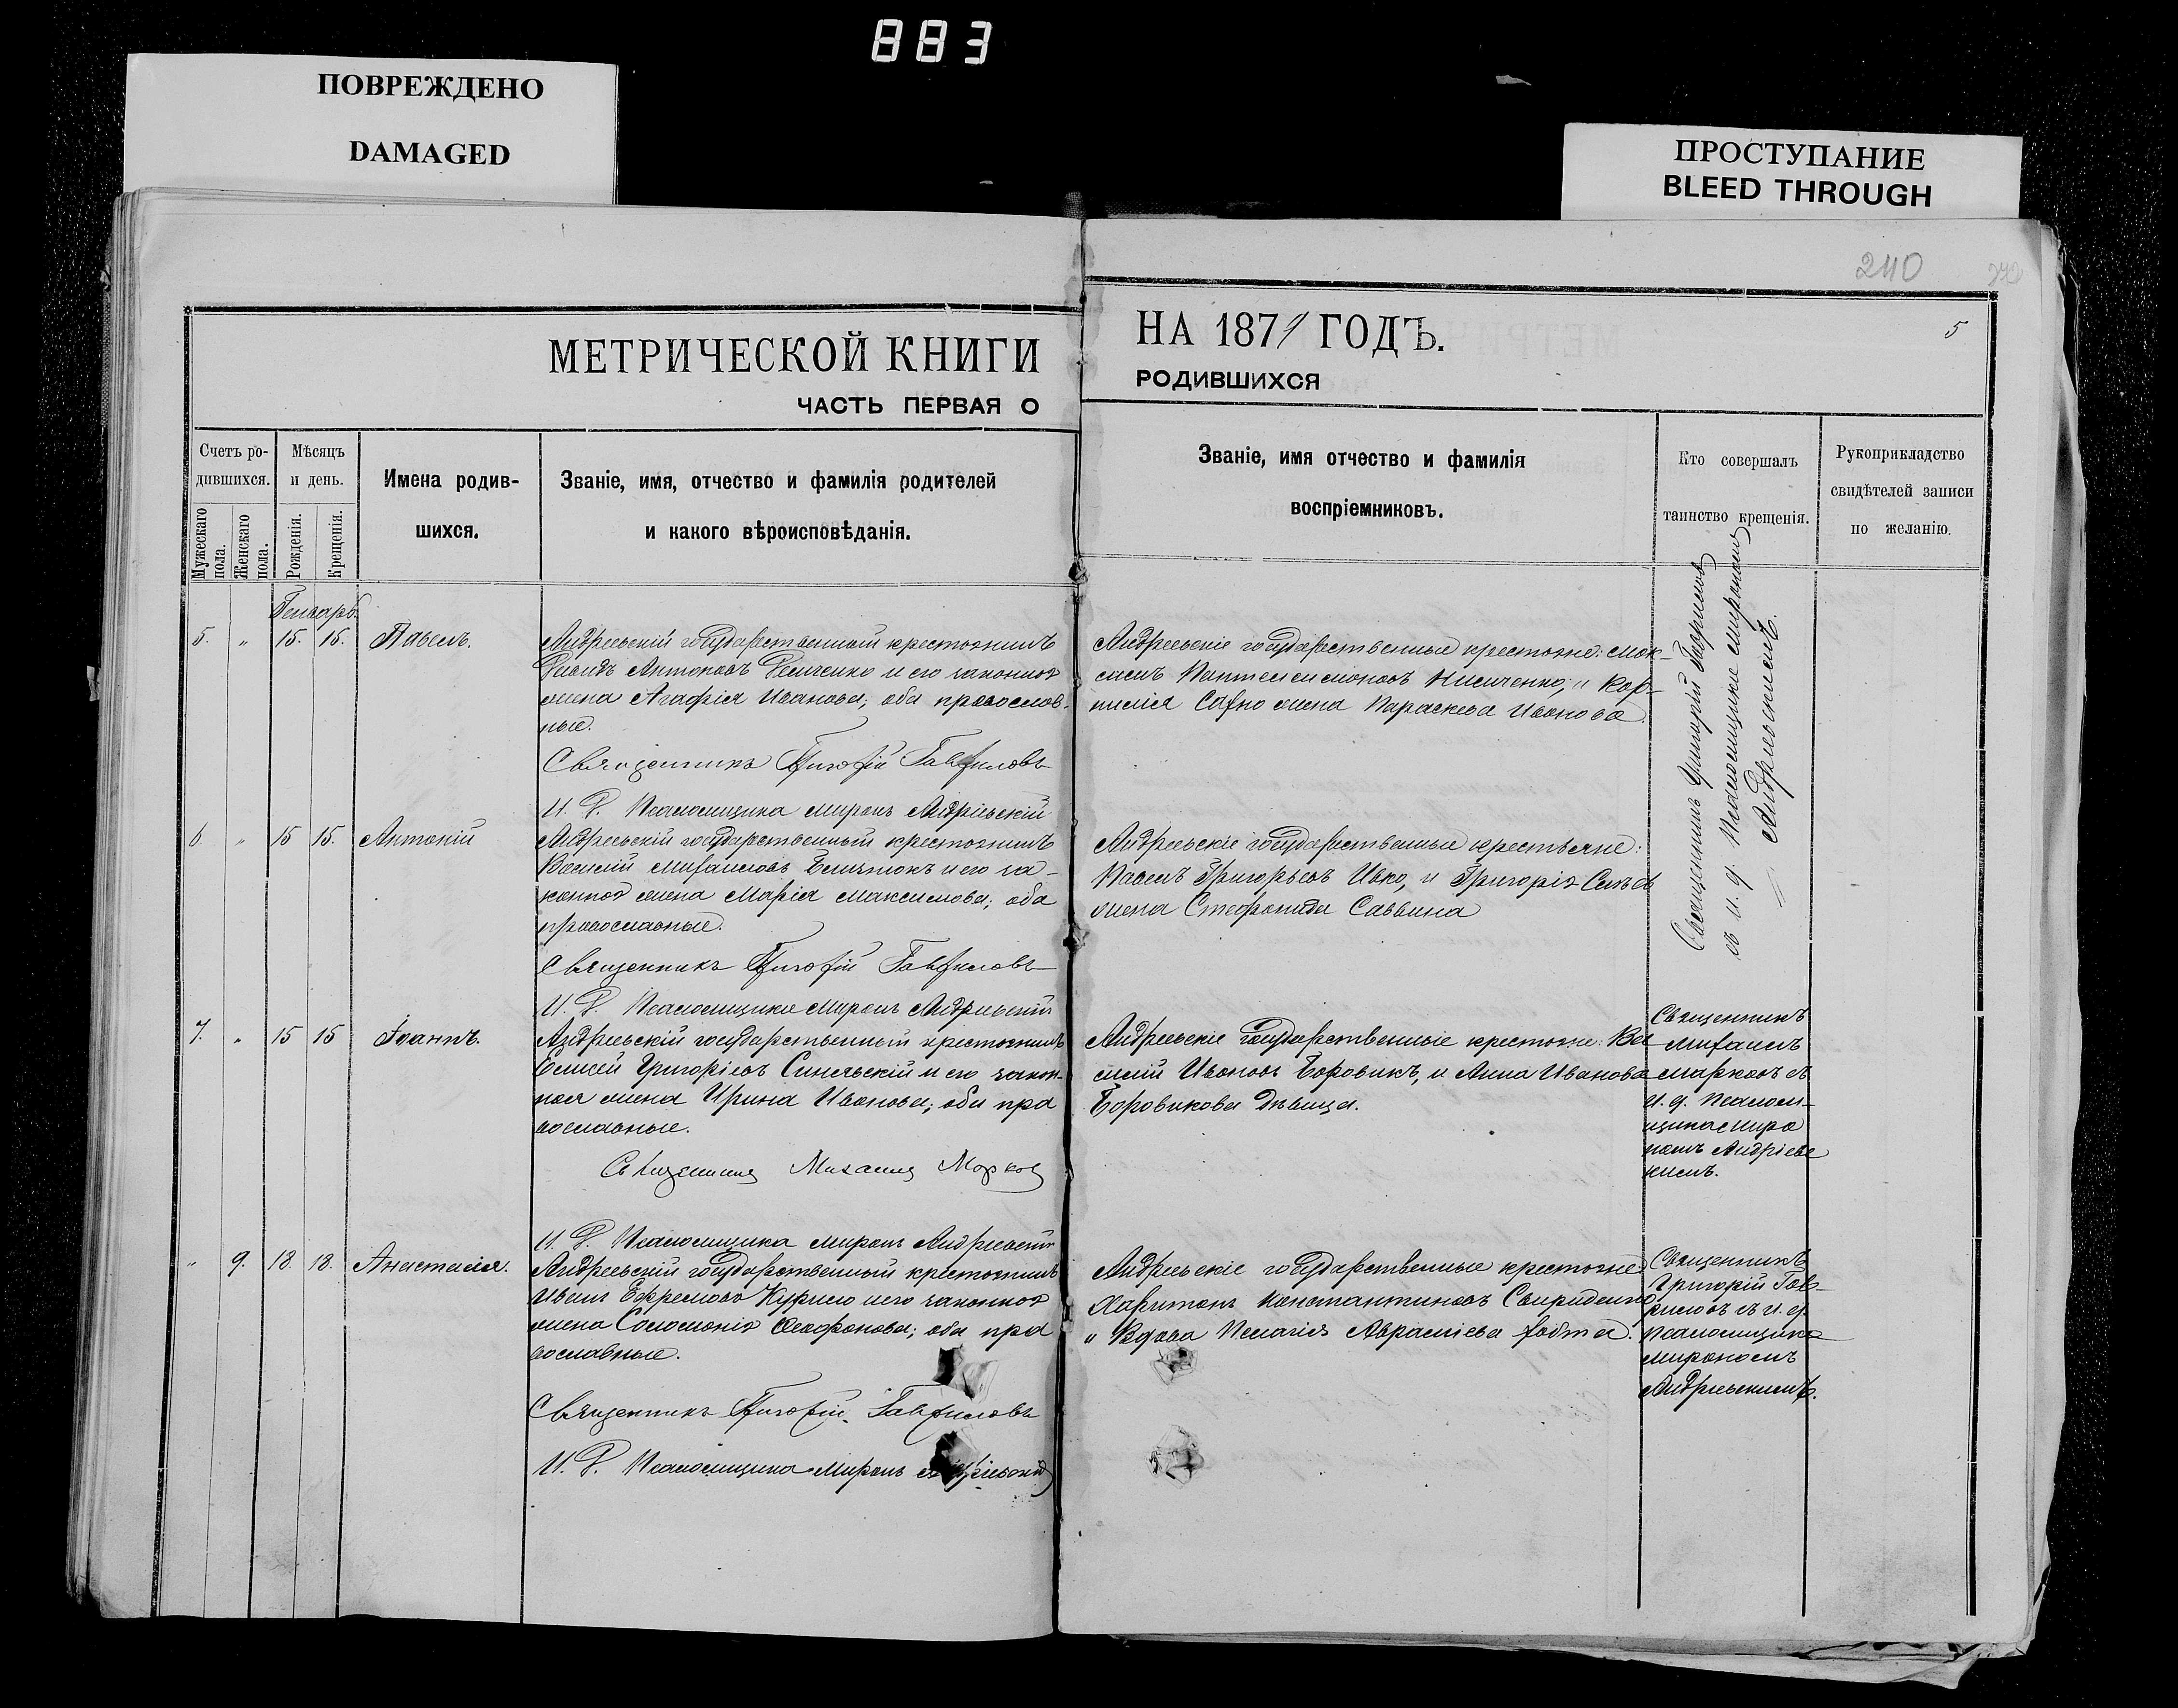 883
ПОВРЕЖДЕНО
DAMAGED
ПРОСТУПАНИЕ
BLEED THROUGH
240
5
МЕТРИЧЕСКОЙ КНИГИ
НА 1871 ГОДЪ.
ЧАСТЬ ПЕРВАЯ О
РОДИВШИХСЯ
Счетъ ро-
дившихся.
Мужескаго пола.
Женскаго пола.
Мѣсяцъ
и день.
Рожденія.
Крещенія.
Имена родив-
шихся.
Званіе, имя, отчество и фамилія родителей
и какого вѣроисповѣданія.
Званіе, имя отчество и фамилія
воспріемниковъ.
Кто совершалъ
таинство крещенія.
Рукоприкладство
свидѣтелей записи
по желанію.
Генварь.
5. " 15. 15. Павелъ.
Андреевскій государственный крестьянинъ
Антоновъ и его законная
жена Агафія Иванова; оба православ-
ные.
Священникъ Григорій Гавриловъ
И. Д. Псаломщика Миронъ Андріевскій
Андреевскіе государственные крестьяне: Мак-
симъ Пантелеимоновъ и Кор-
нилія жена Параскева Иванова
Священникъ Григорій Гавриловъ
съ и. д. Псаломщика Мирономъ
Андріевскимъ.
6. " 15 15. Антоній
Андреевскій государственный крестьянинъ
Василій Михайловъ и его за-
конная жена Марія Максимова; оба
православные.
Священникъ Григорій Гавриловъ
И. Д. Псаломщика Миронъ Андріевскій
Андреевскіе государственные крестьяне:
Павелъ Григорьевъ Ивко, и Григорія
жена Стефанида Саввина
7. " 15 15 Іоаннъ.
Андреевскій государственный крестьянинъ
Елисей Григоріевъ Синявскій и его закон-
ная жена Ирина Иванова; оба пра
вославные.
Священникъ Михаилъ Марковъ
И. Д. Псаломщика Миронъ Андріевскій
Андреевскіе государственные крестьяне: Ва-
силій Ивановъ Боровикъ, и Анна Иванова
Боровикова Дѣвица.
Священникъ
Михаилъ
Марковъ съ
и. д. Псалом-
щика Миро
номъ Андріевс
кимъ.
" 9. 18. 18. Анастасія.
Андреевскій государственный крестьянинъ
Иванъ Ефремовъ Курило и его законная
жена Соломонія оба пра
вославные.
Священникъ Григорій Гавриловъ
И. Д. Псаломщика Миронъ Андріевскій
Андреевскіе государственные крестьяне:
Харитонъ Константиновъ Свириденко
и Вдова Пелагія Авраміева
Священникъ
Григорій Гав-
риловъ съ и. д.
Псаломщика
Мирономъ
Андріевскимъ.